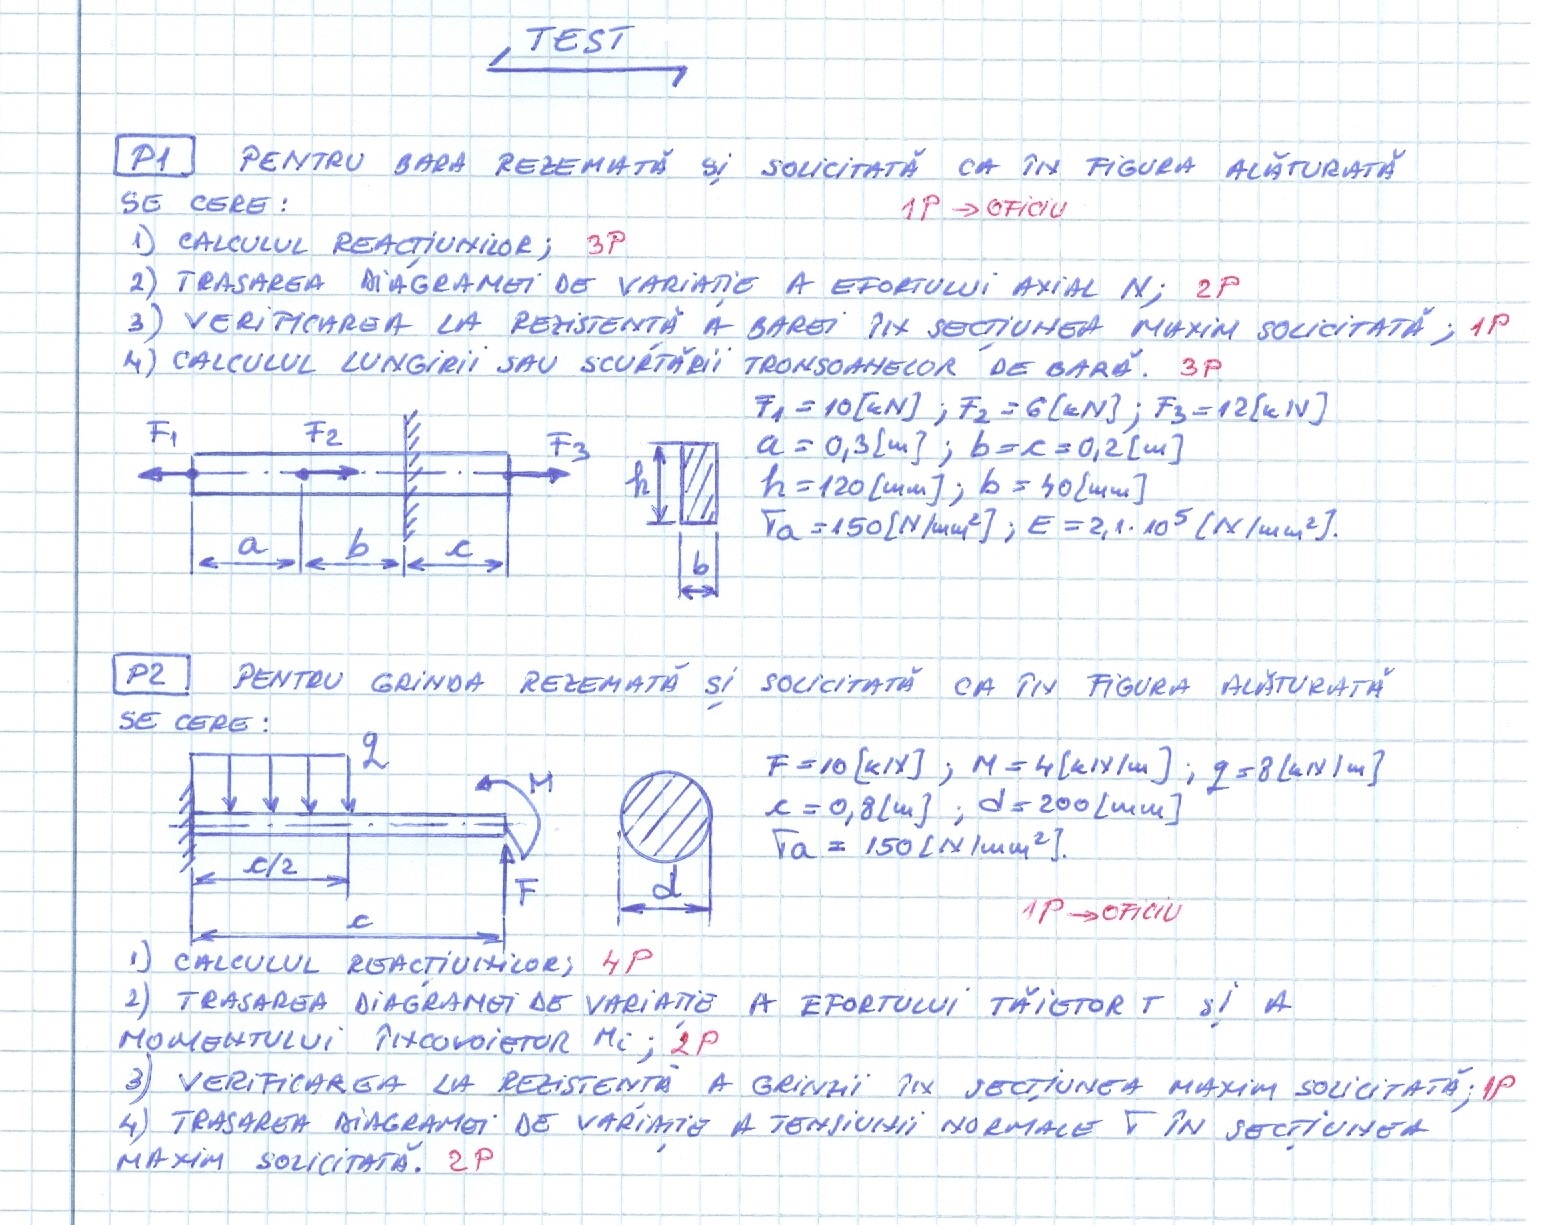 TEST
P1 PENTRU BARA REZEMATĂ ȘI SOLICITATĂ CA ÎN FIGURA ALĂTURATĂ
SE CERE: 1P → OFICIU
1) CALCULUL REACȚIUNILOR; 3P
2) TRASAREA DIAGRAMEI DE VARIAȚIE A EFORTULUI AXIAL N; 2P
3) VERIFICAREA LA REZISTENȚĂ A BAREI ÎN SECȚIUNEA MAXIM SOLICITATĂ; 1P
4) CALCULUL LUNGIRII SAU SCURTĂRII TRONSOANELOR DE BARĂ. 3P
F₁ = 10 [kN] ; F₂ = 6 [kN] ; F₃ = 12 [kN]
a = 0,3 [m] ; b = c = 0,2 [m]
h = 120 [mm] ; b = 40 [mm]
σa = 150 [N/mm²] ; E = 2,1·10⁵ [N/mm²].
F₁ F₂ F₃
h
a b c
b
P2 PENTRU GRINDA REZEMATĂ ȘI SOLICITATĂ CA ÎN FIGURA ALĂTURATĂ
SE CERE:
q
M
F = 10 [kN] ; M = 4 [kN/m] ; q = 8 [kN/m]
c = 0,8 [m] ; d = 200 [mm]
σa = 150 [N/mm²].
c/2
F
d
c
1P → OFICIU
1) CALCULUL REACȚIUNILOR; 4P
2) TRASAREA DIAGRAMEI DE VARIAȚIE A EFORTULUI TĂIETOR T ȘI A
MOMENTULUI ÎNCOVOIETOR Mi ; 2P
3) VERIFICAREA LA REZISTENȚĂ A GRINZII ÎN SECȚIUNEA MAXIM SOLICITATĂ; 1P
4) TRASAREA DIAGRAMEI DE VARIAȚIE A TENSIUNII NORMALE σ ÎN SECȚIUNEA
MAXIM SOLICITATĂ. 2P